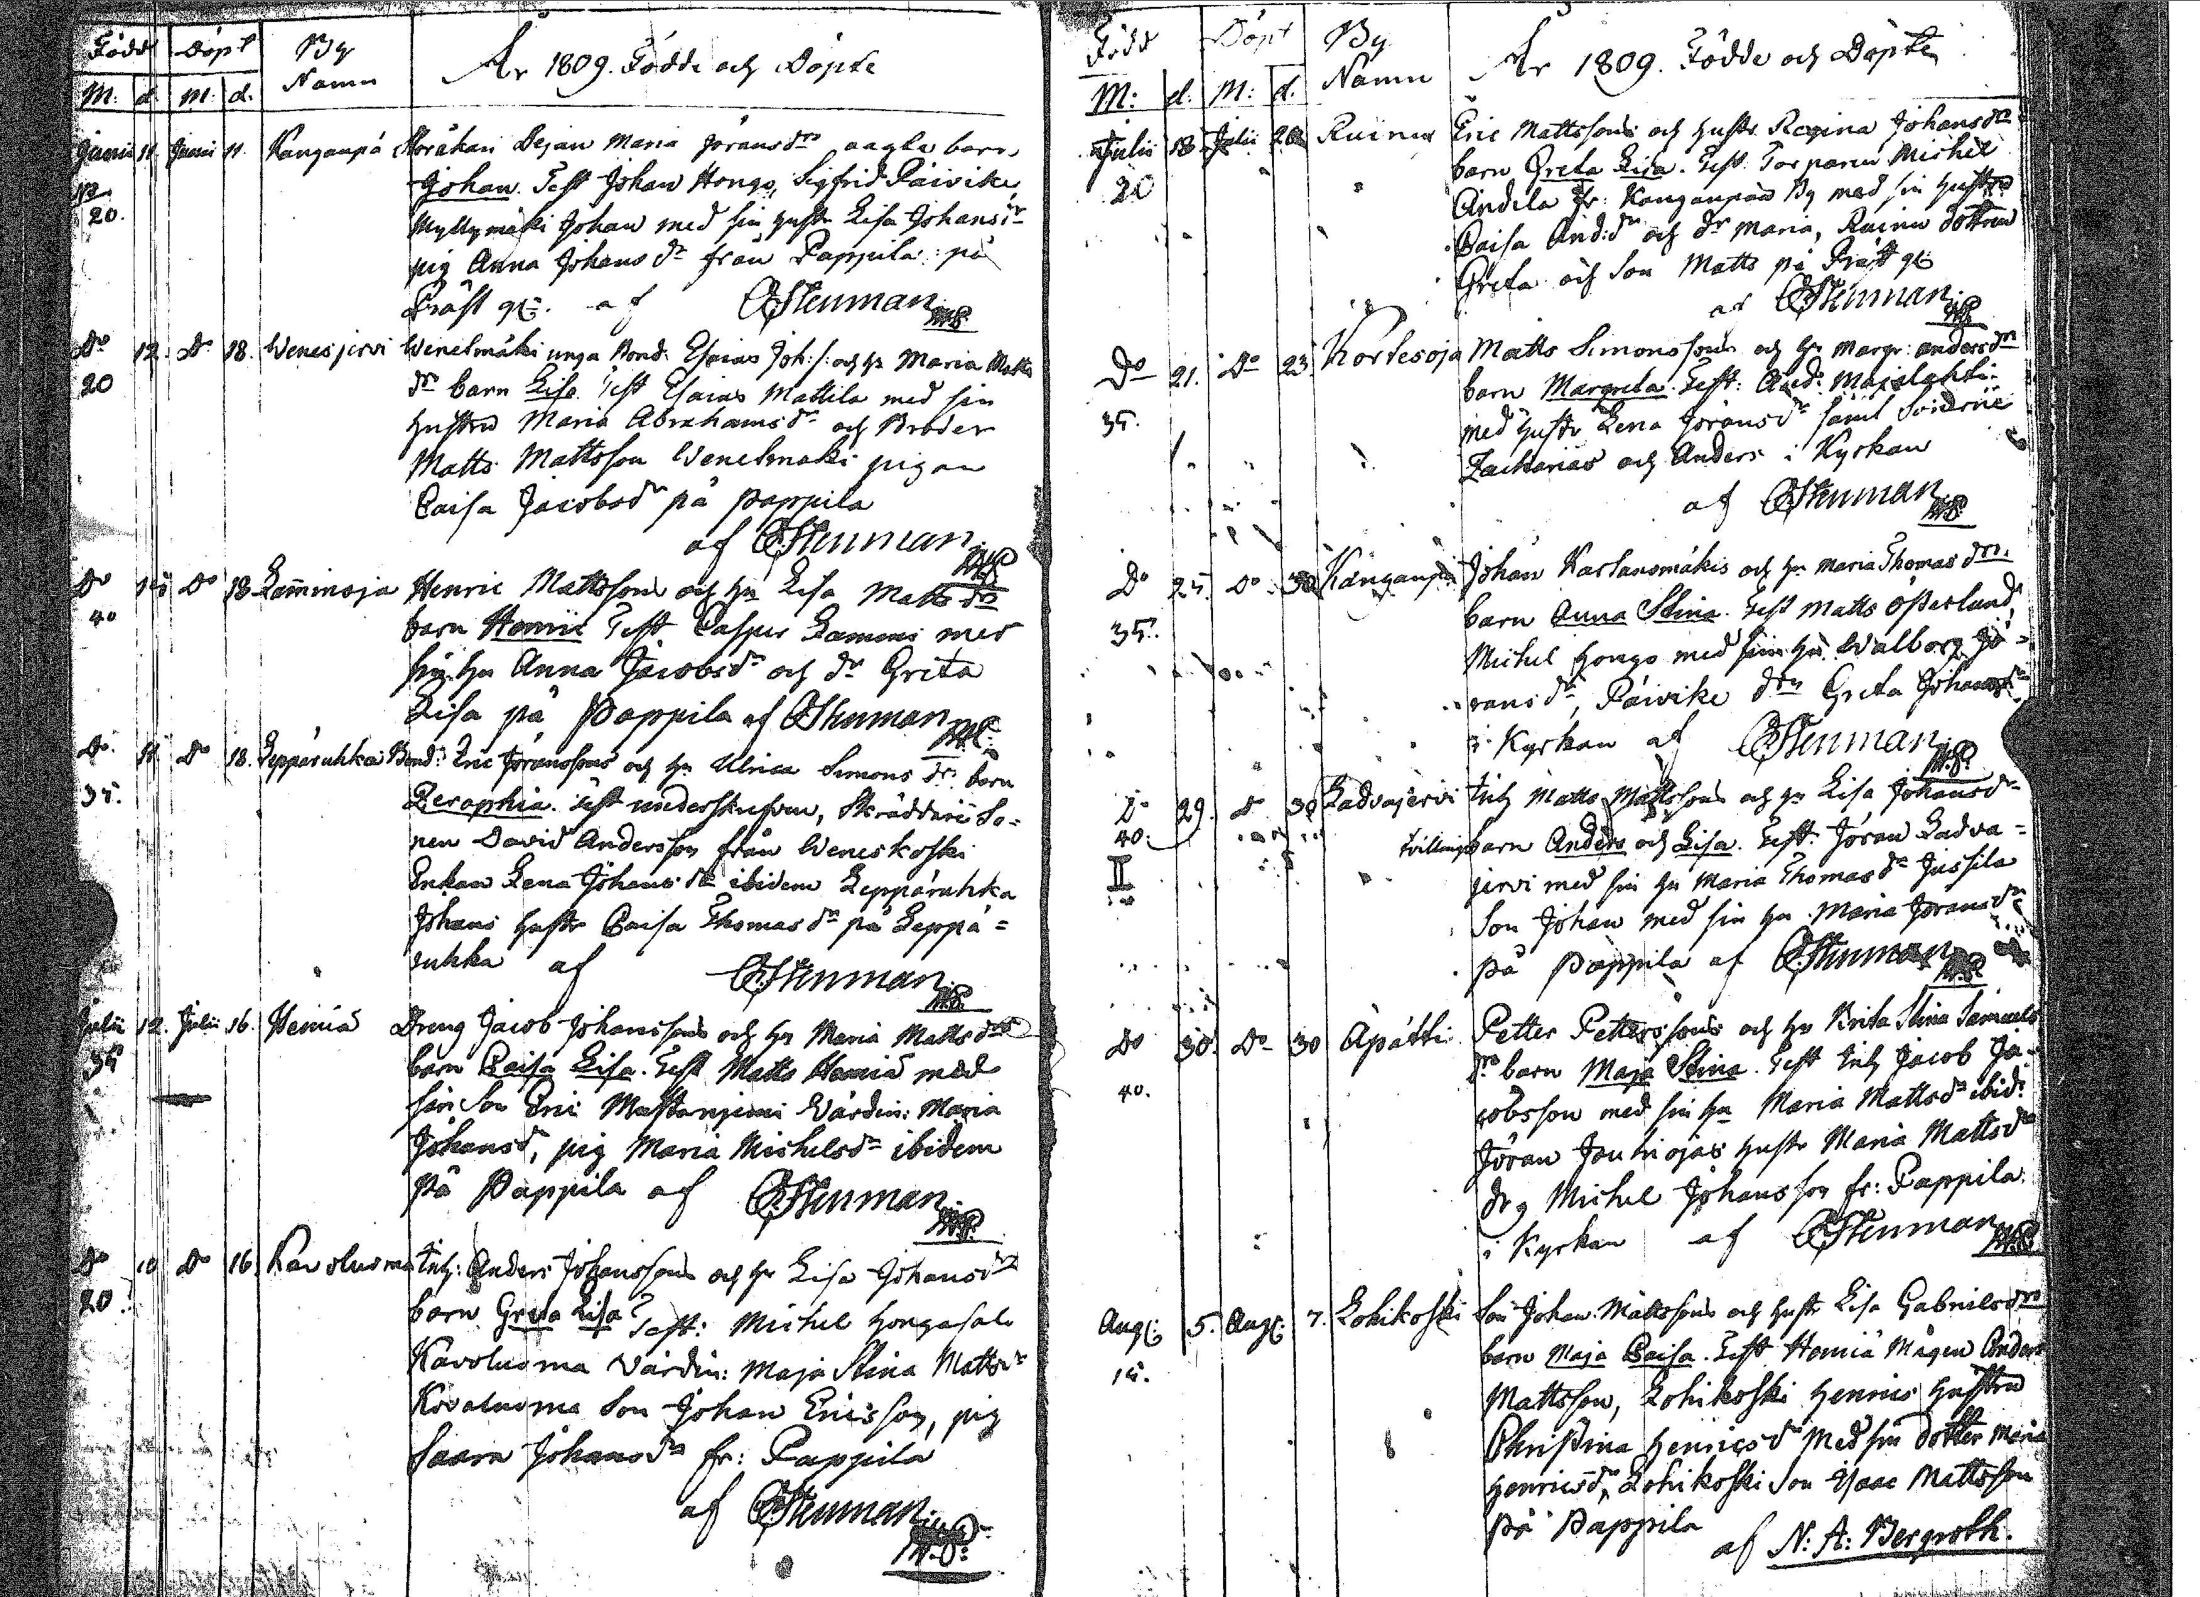 Född Döpt By Namn
M: d. M: d.
År 1809. Födde och Döpte
Junii 11. Junii 11. Kanganpä
barn
Johan. Test Johan Hongo, Sigfrid Päivike
Myllymäki Johan med sin hustr Lisa Johansdr
pig Anna Johansdr från Pappila på
20.
Präst g. af CStenman
Do 12. Do 18. Wenesjervi Wenelmäki unga Bond: Esaias Joh:s: och h: Maria Matts
20
dr barn Lisa Test Esaias Mattila med sin
hustru Maria Abrahamsdr och Broder
Matts Mattsson Wenelmäki pigan
Caisa Jacobsdr på Pappila
af CStenman
Do Do 18. Lamminoja Henric Mattssons och hu Lisa Mattsdrs
40
barn Henric Test Casper Lammi med
sin hu Anna Jacobsdr och dr Greta
Lisa på Pappila af CStenman
Do Do 18. Leppäruhka Bond: Eric Jöranssons och hu Ulrica Simonsdrs barn
35.
Test underskrefven, Skräddarii So-
nen David Andersson från Weneskoski
Enkan Lena Johansdr ibidem Leppäruhka
Johans hustr Caisa Thomasdr på Leppä=
ruhka af CStenman
Julii 12. Julii 16. Hemiä Dreng Jacob Johanssons och hu Maria Mattsdrs
35
barn Caisa Lisa. Test Matts Hemiä med
sin Son Eric Wärdin: Maria
Johansdr, pig Maria Michelsdr ibidem
på Pappila af CStenman
Do 10 Do 16. Kavoluoma Inh: Anders Johanssons och hu Lisa Johansdrs
20
barn Greta Lisa Test: Michel Hongasalo
Kavoluoma Värdin: Maja Stina Mattsdr
Kavoluoma Son Johan Ericsson, pig
Saara Johansdr fr: Pappila
af CStenman
Född Döpt By Namn
M: d. M: d.
År 1809. Födde och Döpte
Julii 18. Julii Ruinu Eric Mattssons och hustr Regina Johansdrs
20
barn Greta Lisa. Test Torparen Michel
Andila fr: Kanganpää By med sin hustru
Caisa And:dr och dr Maria, Ruinu dottren
Greta och Son Matts på Präst g
af CStenman
Do 21. Do 23. Kortesoja Matts Simonssons och hu Margr: Andersdrs
35.
barn Margreta. Test: And: Majslahti
med hustr Lena Jöransdr samt Sönerne
Zacharias och Anders i Kyrkan
af CStenman
Do 25. Do 30 Kanganpä Johan Karlanomäkis och hu Maria Thomasdrs
35.
barn Anna Stina. Test Matts Österlund,
Michel Hongo med sin hu Walborg Jö-
ransdr, Päivike drn Greta Johansdr
i Kyrkan af CStenman
Do 29. Do 30 Ladvajervi Inh Matts Mattssons och hu Lisa Johansdrs
40.
II
tvilling barn Anders och Lisa. Test: Jöran Ladva=
jervi med sin hu Maria Thomasdr Jussila
Son Johan med sin hu Maria Jöransdr
på Pappila af CStenman
Do 30. Do 30 Apätti Petter Petterssons och hu Brita Stina Samuels
40.
drs barn Maja Stina. Test Inh Jacob Ja-
cobsson med sin hu Maria Mattsdr ibid:
Jöran Jouhiojas hustr Maria Mattsdr
drg Michel Johansson fr: Pappila.
i Kyrkan af CStenman
Aug: 5. Aug: 7. Lohikoski Son Johan Mattssons och hustr Lisa Gabrielsdrs
15.
barn Maja Caisa. Test Hemiä Mågen Anders
Mattsson, Lohikoski Henrics hustru
Christina Henricsdr med sin dotter Maria
Henricsdr, Lohikoski Son Isaac Mattsson
på Pappila
af N: A: Bergroth.